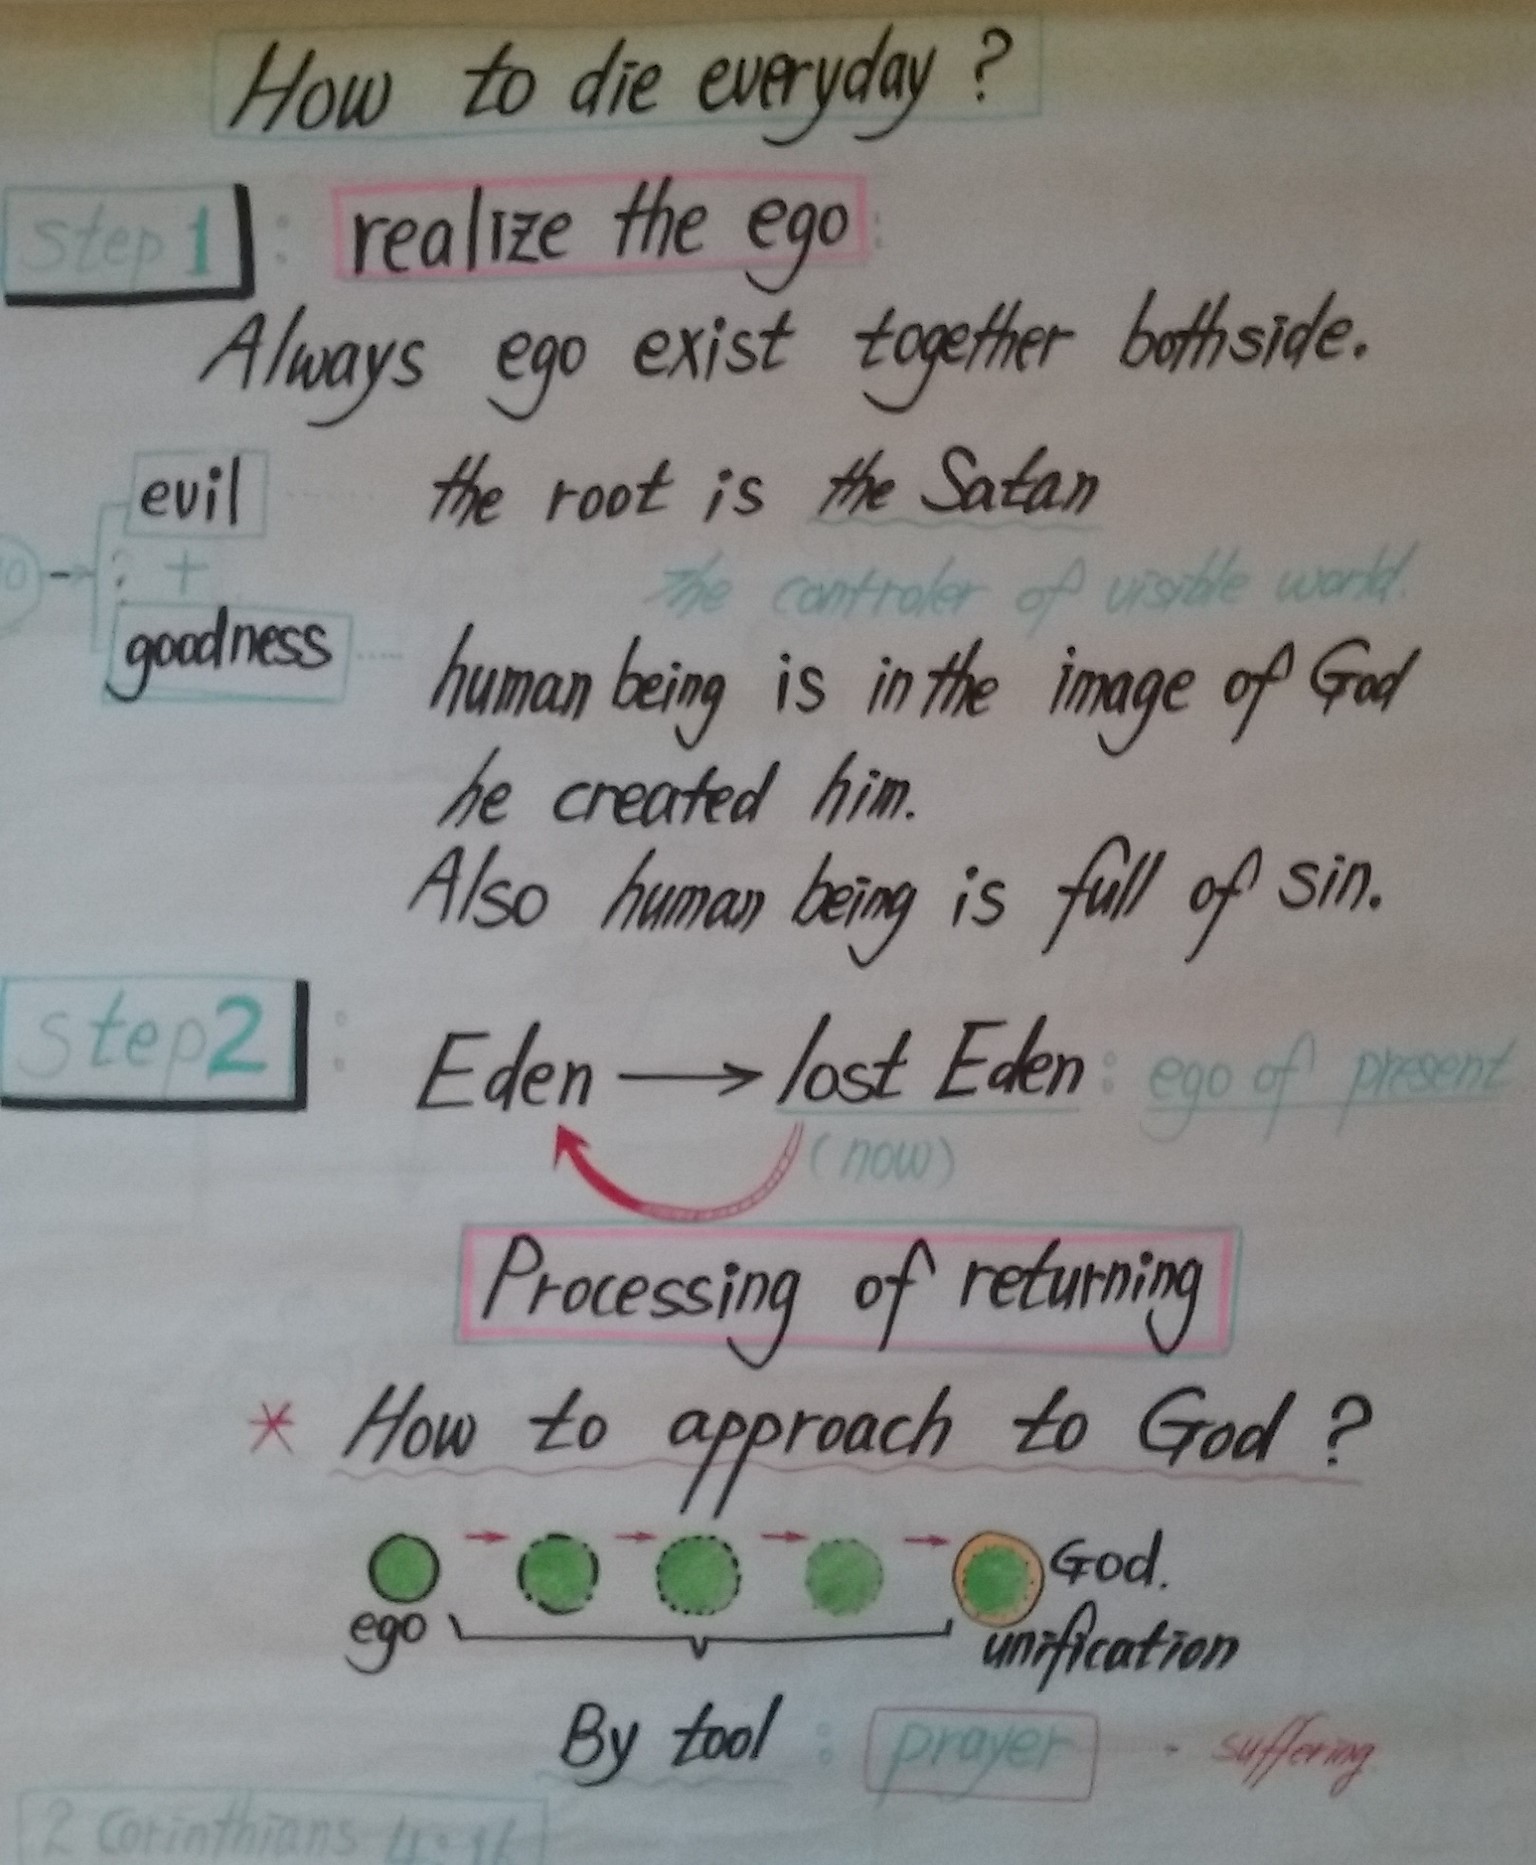 How to die everyday ?
Step 1 : realize the ego :
Always ego exist together bothside.
evil ...... the root is the Satan
+ the controler of visible world.
goodness .... human being is in the image of God
he created him.
Also human being is full of sin.
Step 2 : Eden → lost Eden : ego of present
(now)
Processing of returning
* How to approach to God ?
God.
ego
unification
By tool : prayer - suffering.
2 Corinthians 4:16